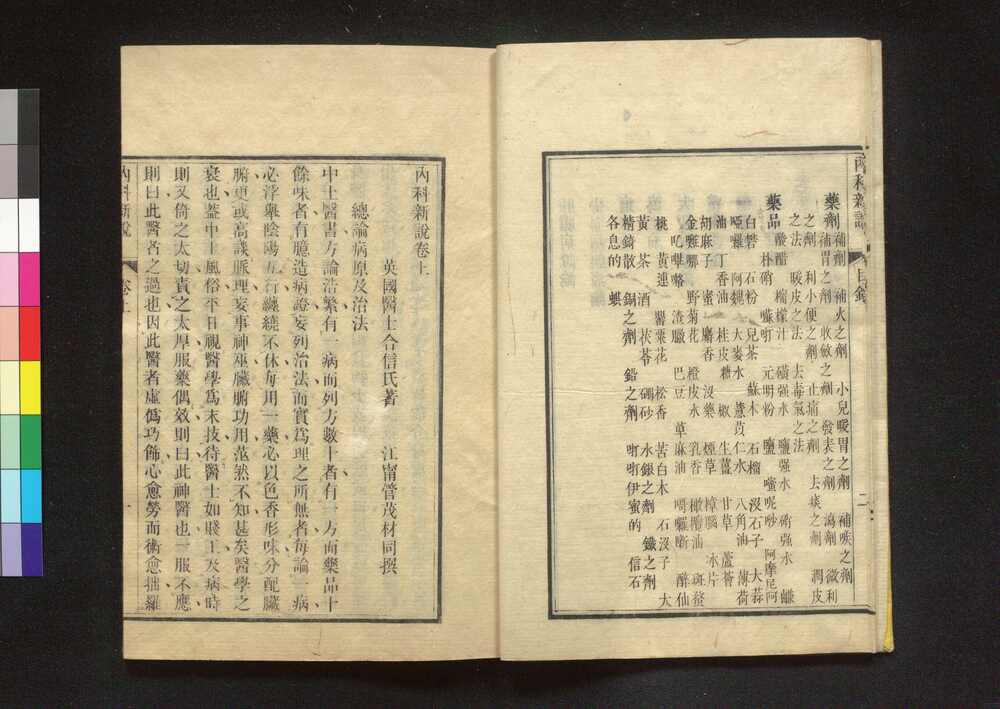 內科新說 目錄 二
藥劑 補劑 補火之劑 小兒暖胃之劑 補咳之劑
補胃之劑 收斂之劑 發表之劑 瀉劑 微利
之劑 利小便之劑 止痛之劑 去痰之劑 潤皮
之法 暖皮之法 去毒氣之法
藥品 醋醋 檸檬汁 磺强水 鹽强水 硝强水 鹻
朴硝 元明粉 鹽 阿摩尼阿
白礬 石粉 兒茶 蘇木 石榴 沒石子 大蒜
啞囉 阿魏 大麥水 薏苡仁水 八角油 薄荷
油 丁香油 桂皮 糖 椒 生薑 甘草 蘆薈
胡麻子 蜜 麝香 沒藥 煙草 樟腦 冰片
金雞哪 野菊花 橙皮水 乳香 橄欖油 斑蝥
渣臘 巴豆 萆麻油 酥 仙
桃 黃連 罌粟花 松香 苦白木 石沒子 大
黃 茶 酒 茯苓 硼砂 水銀之劑 鐵之劑
精錡散 銅之劑 鉛之劑 伊蜜的 信石
各息的 蜞
內科新說卷上
英國醫士合信氏著 江甯管茂材同撰
總論病原及治法
中土醫書方論浩繁有一病而列方數十者有一方而藥品十
餘味者有臆造病證妄列治法而實爲理之所無者每論一病
必浮舉陰陽五行纏繞不休每用一藥必以色香形味分配臟
腑更或高談脈理妄事神巫臟腑功用茫然不知甚矣醫學之
衰也蓋中土風俗平日視醫學爲末技待醫士如賤工大病時
則又倚之太切責之太厚服藥偶效則曰此神醫也一服不應
則曰此醫者之過也因此醫者虛僞巧飾心愈勞而術愈拙羅
內科新說 卷上 一